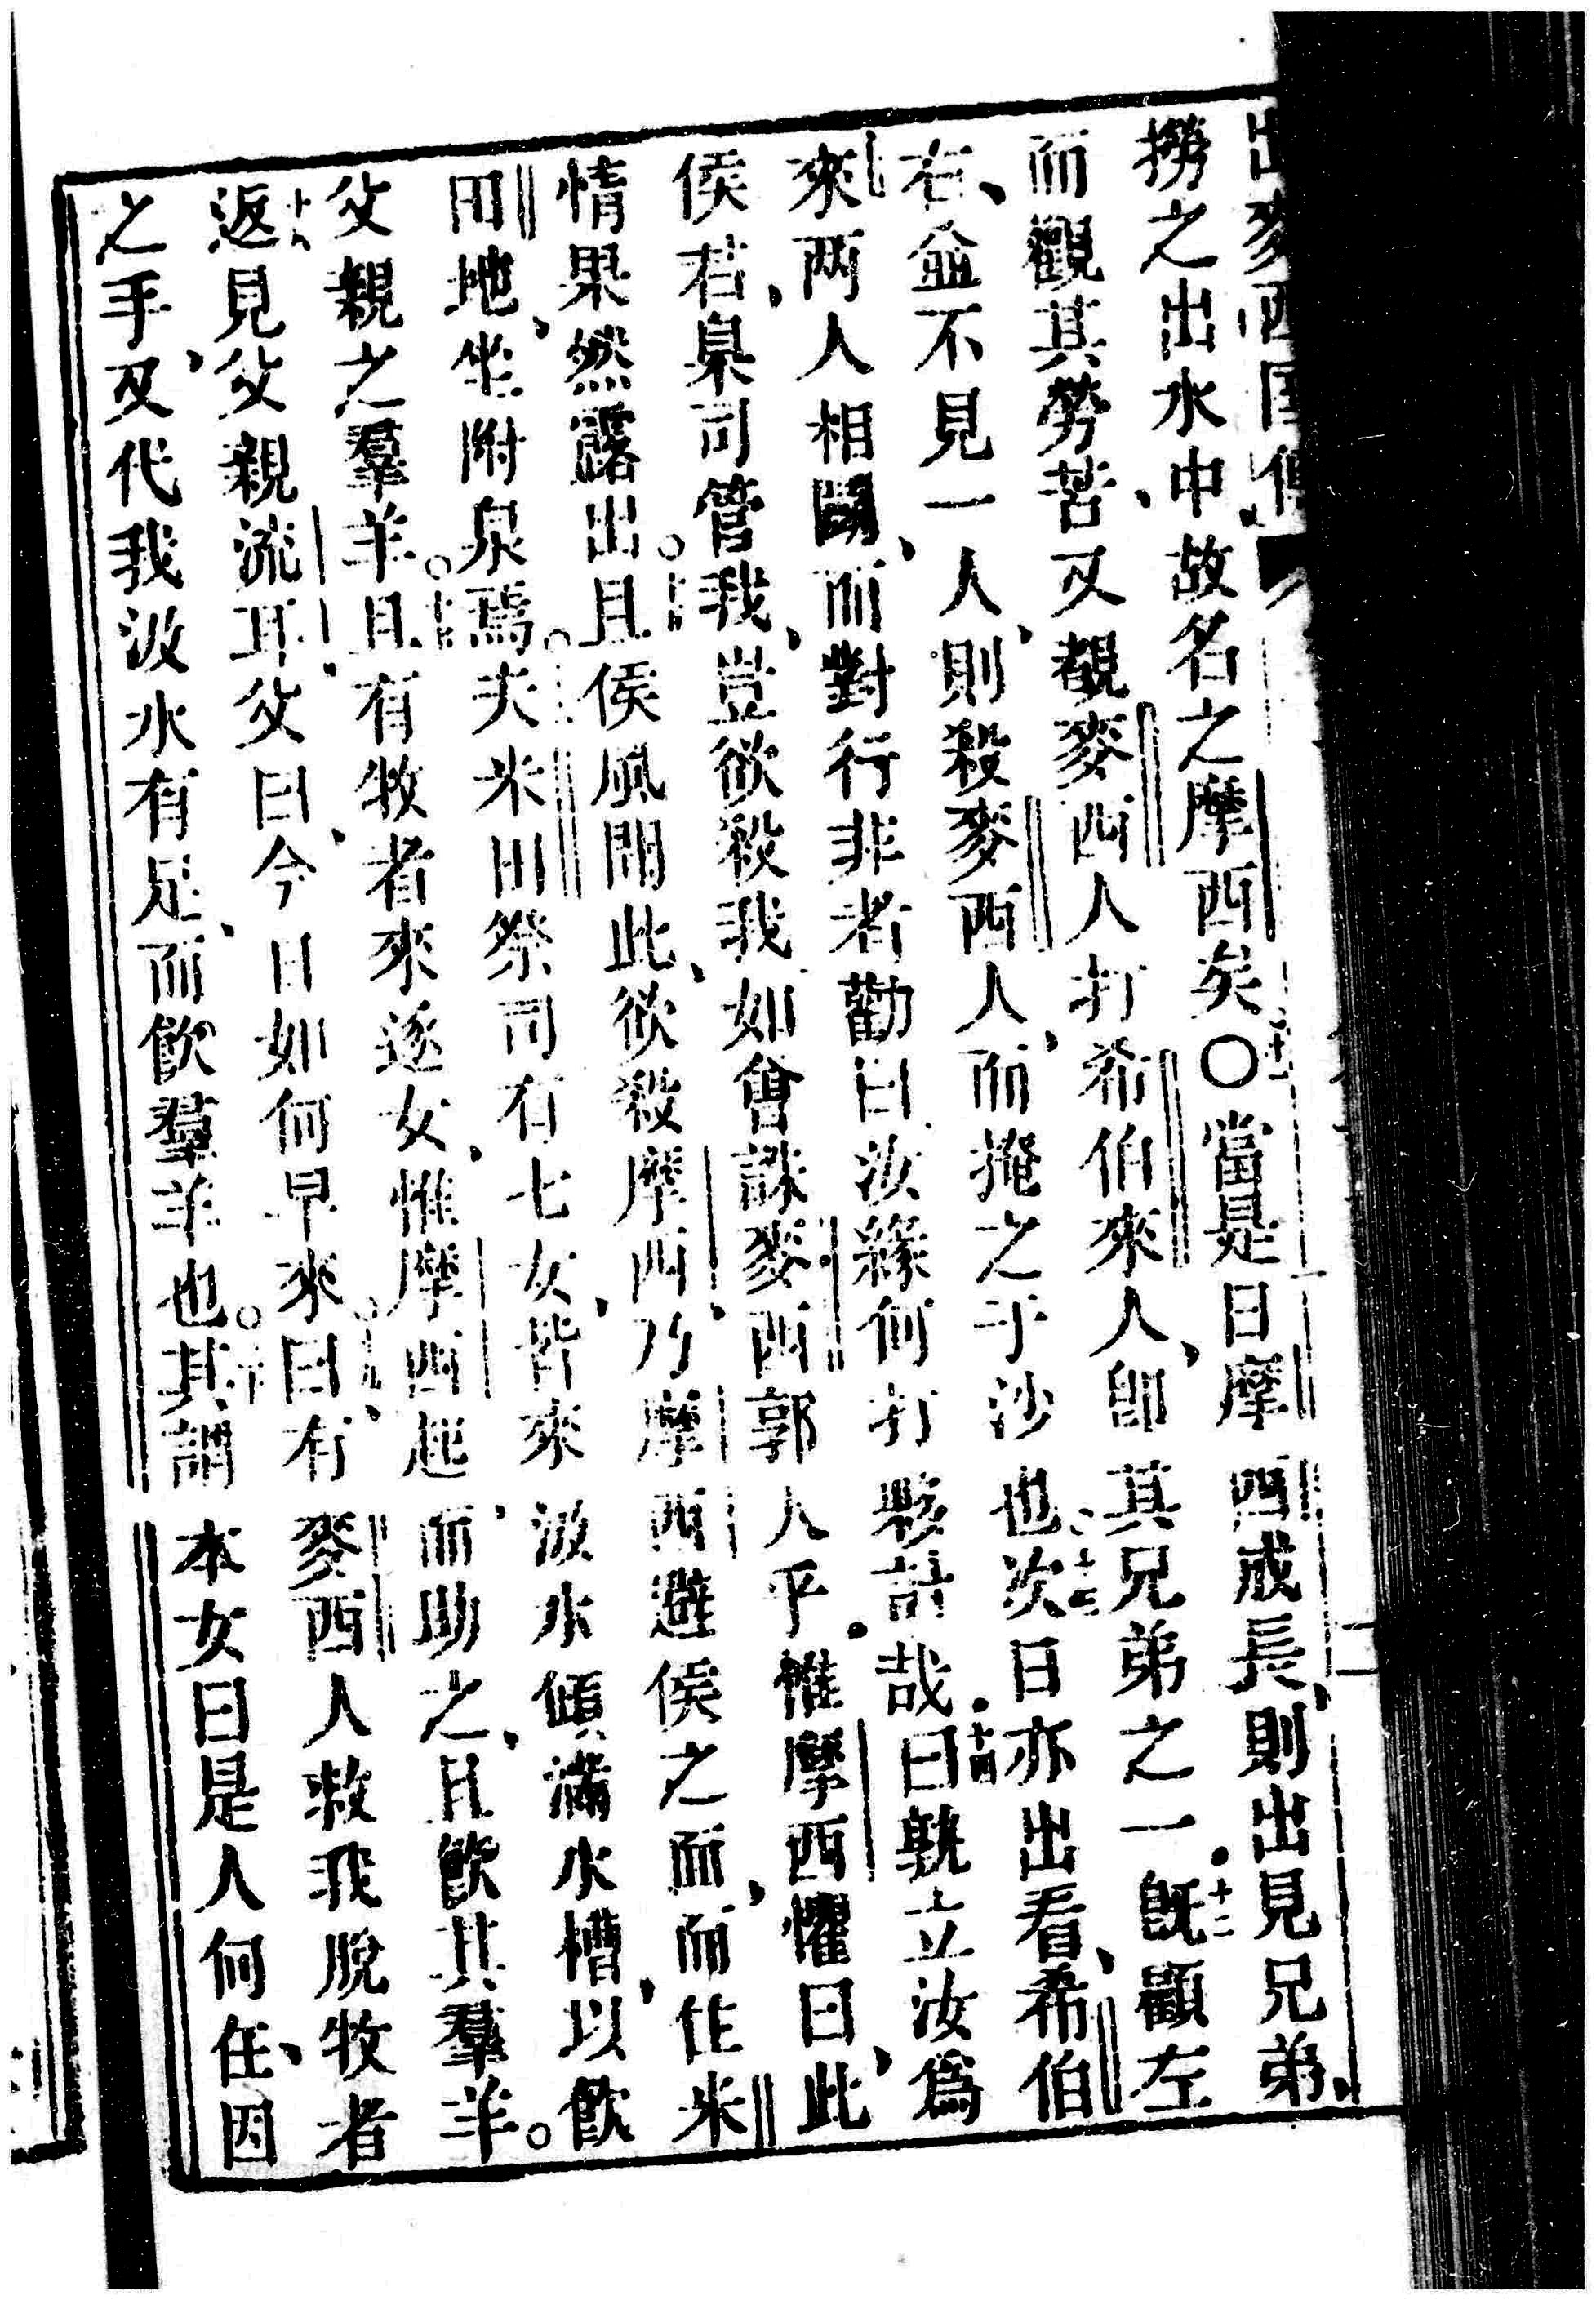 出麥西國傳
撈之出水中故名之摩西矣〇十一當是日摩西成長則出見兄弟、
而觀其勞苦、又覩麥西人打希伯來人、卽其兄弟之一。十二旣顧左
右、並不見一人、則殺麥西人、而掩之于沙也、十三次日亦出看、希伯
來两人相鬪、而對行非者勸曰汝緣何打夥計哉。十四曰孰立汝爲
侯君、臬司管我、豈欲殺我如曾誅麥西郭人乎。惟摩西懼曰、此
情果然露出。十五且侯風聞此、欲殺摩西、乃摩西避侯之面、而住米
田地、坐附泉焉。十六夫米田祭司有七女、皆來汲水傾滿水槽、以飲
父親之羣羊。十七且有牧者來逐女、惟摩西起、而助之、且飲其羣羊。
十八返見父親流耳、父曰、今日如何早來。十九曰、有麥西人救我脫牧者
之手、又代我汲水有足、而飲羣羊也。二十其謂本女曰是人何在、因